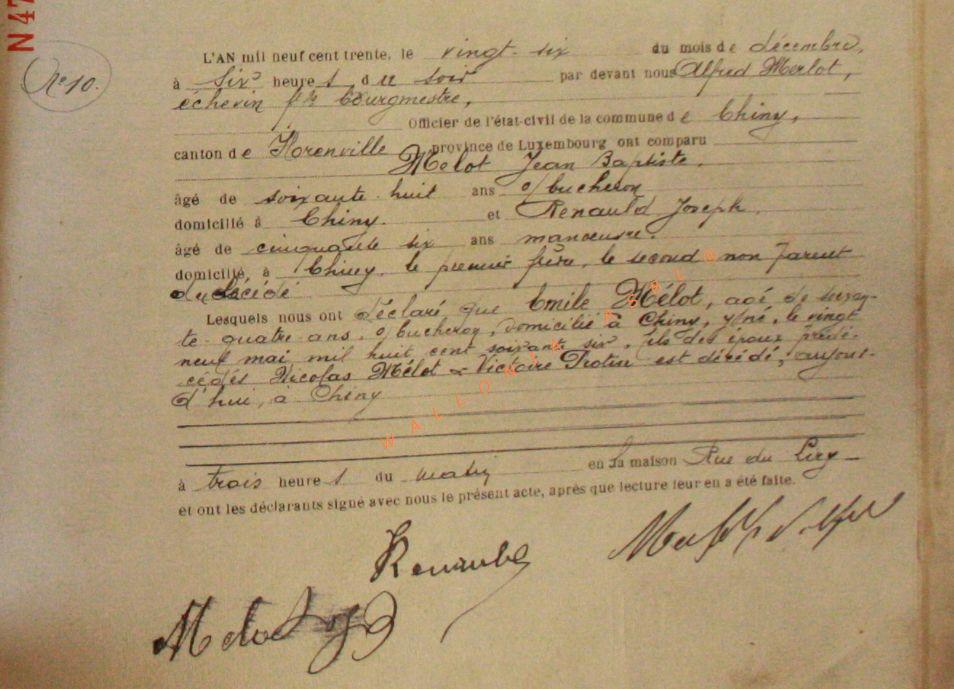 N 47
No 10.
L'AN mil neuf cent trente, le vingt-six du mois de décembre,
à six heures du soir par devant nous Alfred Merlot,
échevin ff de bourgmestre,
Officier de l'état-civil de la commune de Chiny,
canton de Florenville province de Luxembourg ont comparu
Mélot Jean Baptiste,
âgé de soixante-huit ans bucheron
domicilié à Chiny. et Renauld Joseph,
âgé de cinquante six ans manoeuvre.
domicilié, à Chiny, le premier frère, le second non parent
du décédé
Lesquels nous ont déclaré, que Emile Mélot, agé de soixan-
te-quatre ans, bucheron, domicilié à Chiny, y né, le vingt
neuf mai mil huit cent soixante six, fils des époux prédé-
cédés Nicolas Mélot & Victoire est décédé, aujour-
d'hui, à Chiny
à trois heures du matin en la maison Rue du
et ont les déclarants signé avec nous le présent acte, après que lecture leur en a été faite.
Renauld
WALLONIE